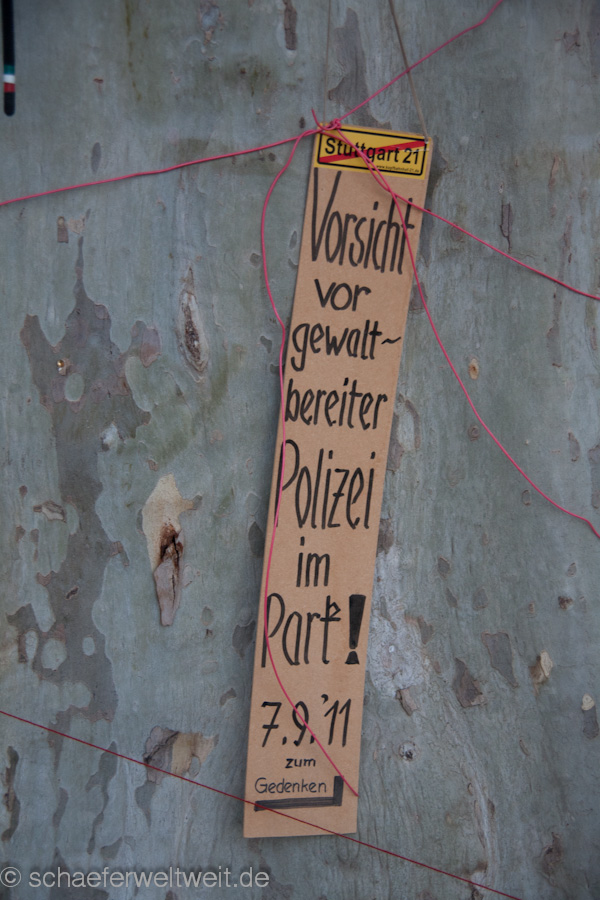 Stuttgart 21
Vorsicht
vor
gewalt~
bereiter
Polizei
im
Part²!
7.9.'11
zum
Gedenken
© schaeferweltweit.de